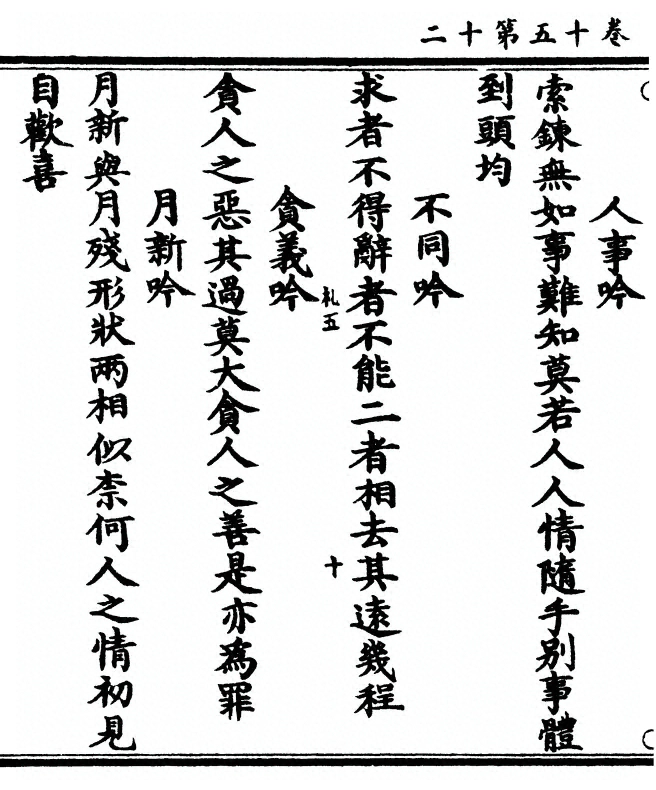 巻十五第十二
人事吟
索鍊無如事難知莫若人人情隨手别事體
到頭均
不同吟
求者不得辭者不能二者相去其遠幾程
札五
十
貪義吟
貪人之惡其過莫大貪人之善是亦為罪
月新吟
月新與月殘形狀兩相似柰何人之情初見
自歡喜